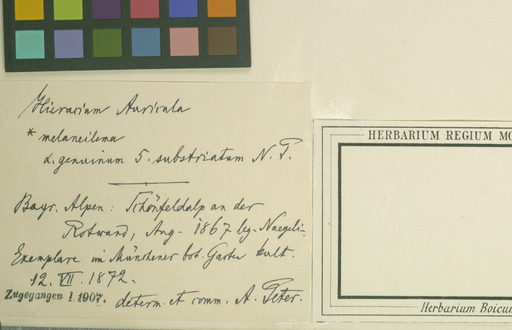 Hieracium Auricula
* melaneilema
α. genuinum 5. substriatum N. P.
Bayr. Alpen: Schönfeldalp an der
Rotwand, Aug. 1867 leg. Naegeli.
Exemplare im Münchener bot. Garten kult.
12. VII. 1872.
Zugegangen I. 1907. determ. et comm. A. Peter.
HERBARIUM REGIUM MO
Herbarium Boicum